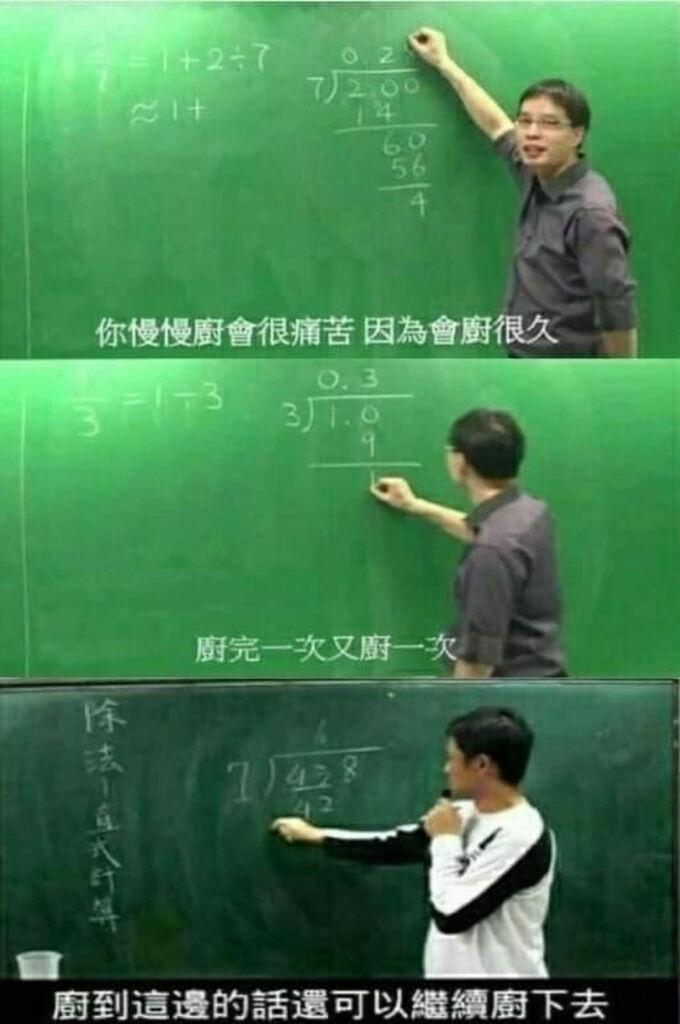 2/7 = 1+2÷7
≈ 1+
0.2
7)2.00
14
60
56
4
你慢慢廚會很痛苦 因為會廚很久
1/3 = 1÷3
0.3
3)1.0
9
1
廚完一次又廚一次
除法-直式計算
6
7)428
42
廚到這邊的話還可以繼續廚下去